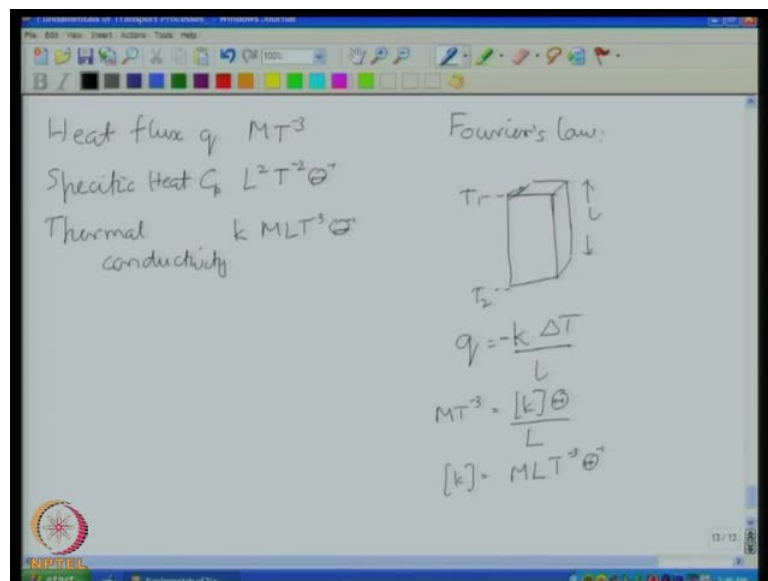 Fundamentals of Transport Processes_ - Windows Journal
File Edit View Insert Actions Tools Help
100%
B I
Heat flux q MT⁻³
Specific Heat Cp L²T⁻²Θ⁻¹
Thermal k MLT⁻³Θ⁻¹
conductivity
Fourier's law:
T₁
L
T₂
q = -k ΔT
L
MT⁻³ = [k]Θ
L
[k] = MLT⁻³Θ⁻¹
13 / 13
NPTEL
start